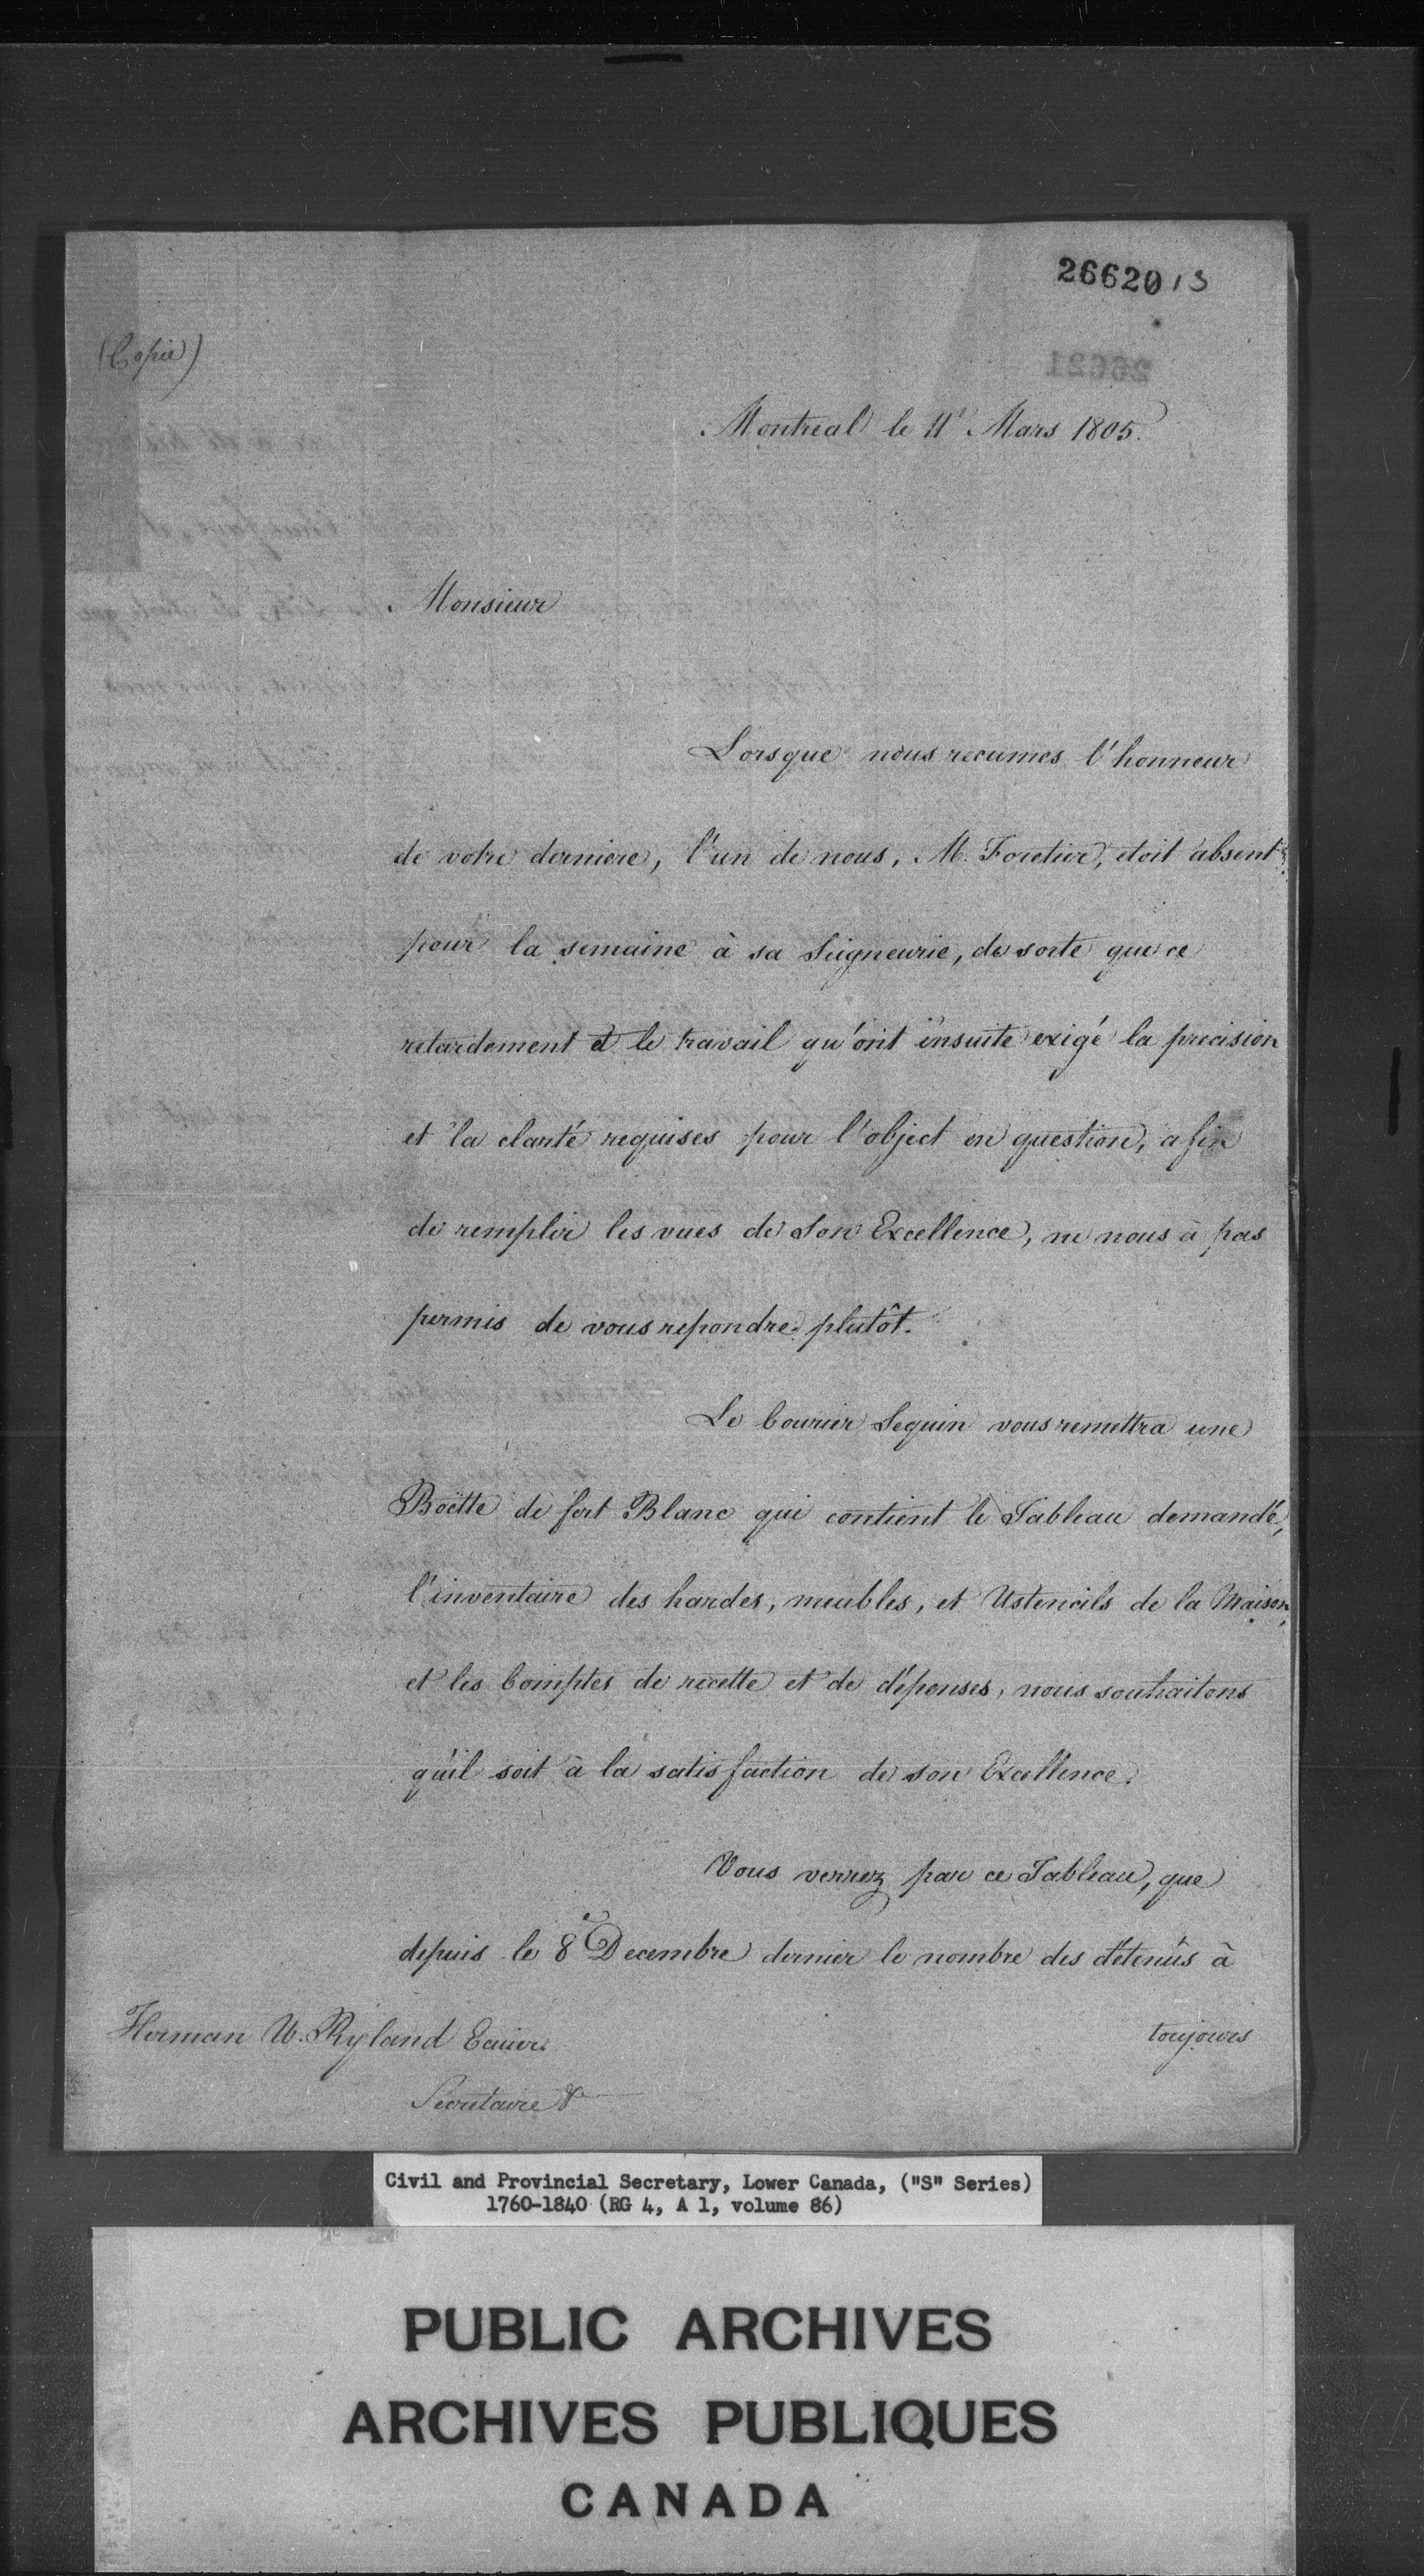 26620 13
26621
(Copie)
Montreal le 11e Mars 1805.
Monsieur
Lorsque nous recumes l'honneur
de votre derniere, l'un de nous, M. Foretier, etoit absent
pour la semaine à sa Seigneurie, de sorte que ce
retardement et le travail qu'ont ensuite exigé la precision
et la clarté requises pour l'object en question, afin
de remplir les vues de Son Excellence, ne nous à pas
permis de vous repondre plutôt.
Le Courier Seguin vous remettra une
Boëtte de fert Blanc qui contient le Tableau demandé,
l'inventaire des hardes, meubles, et Ustencils de la Maison,
et les Comptes de recette et de dépenses, nous souhaitons
qu'il soit à la satisfaction de son Excellence.
Vous verrez par ce Tableau, que
depuis le 8e Decembre dernier le nombre des détenûs à
toujours
Herman W. Ryland Ecuier
Secretaire &
Civil and Provincial Secretary, Lower Canada, ("S" Series)
1760-1840 (RG 4, A 1, volume 86)
PUBLIC ARCHIVES
ARCHIVES PUBLIQUES
CANADA